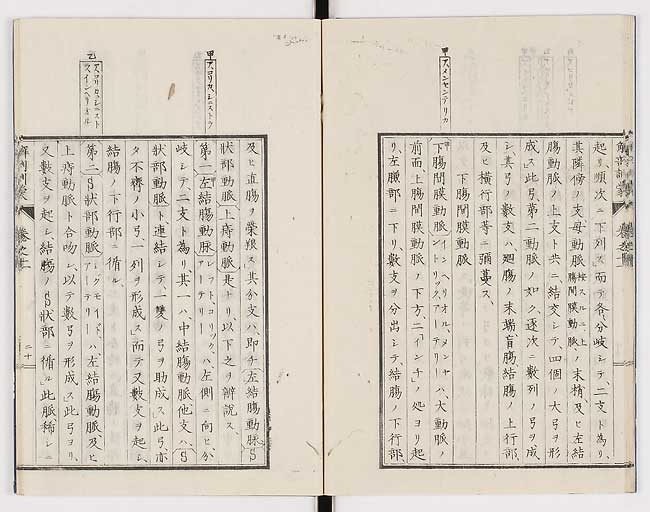 起リ、順次ニ下列ス」而テ各、分岐シテ、二支ト為リ、
其隣傍ノ支母動脈 按スルニ、上腸間膜動脈 ノ末梢及ヒ左結
腸動脈ノ上支ト共ニ結交シテ、四個ノ大弓ヲ形
成ス」此弓、第二動脈ノ如ク逐次ニ数列ノ弓ヲ成
シ其弓ノ数支ハ、廻腸ノ末端盲腸結腸ノ上行部、
及ヒ横行部等ニ彌蔓ス、
下腸間膜動脈
甲 スメンヤンテリカ
下腸間膜動脈 インヘリオル、メンヤンテリック、アーテリー ハ大動脈ノ
前面、上腸間膜動脈ノ下方、二「インチ」ノ処ヨリ起
リ、左腰部ニ下リ、数支ヲ分出シテ、結腸ノ下行部、
及ヒ直腸ヲ榮殖ス」其分支ハ、即チ左結腸動脈S
状部動脈上痔動脈是ナリ、以下之ヲ辨説ス、
甲
第一左結腸動脈 レフト、コリック、アーテリー ハ、左側ニ向ヒ、分
岐シテ二支ト為リ、其一ハ、中結腸動脈他支ハ、S
状部動脈ト連結シテ一双ノ弓ヲ助成ス」此弓亦
タ不齊ノ小弓、一列ヲ形成ス」而テ又数支ヲ起シ、
結腸ノ下行部ニ循ル、
乙
第二S状部動脈 シグモイド、アーテリー ハ、左結腸動脈及ヒ
上痔動脈ト合吻シ、以テ数弓ヲ形成ス」此弓ヨリ、
又数支ヲ起シ結腸ノS状部ニ循ル」此脈稀シニ
解剖訓蒙
二十